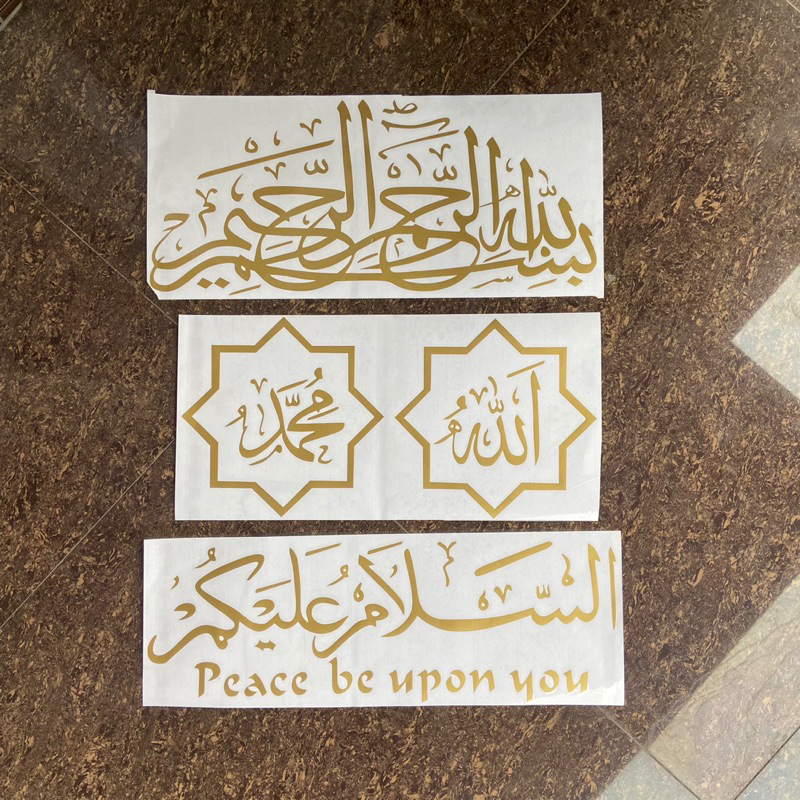 بِسْمِ اللهِ الرَّحْمٰنِ الرَّحِيْمِ
اَللهُ مُحَمَّد
السَّلَامُ عَلَيْكُمْ
Peace be upon you